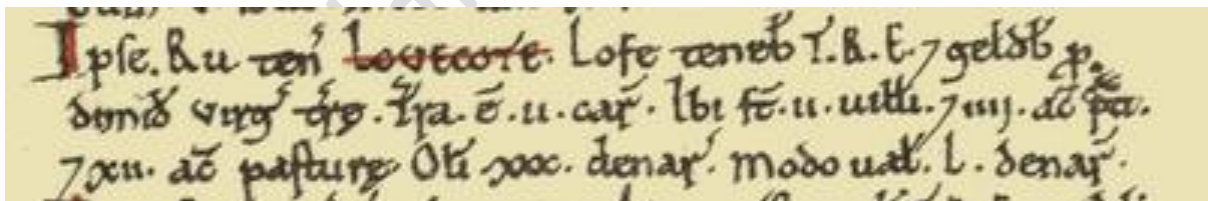 Ipse. Ru ten̄ Lovecote. Lofe teneb̄ T.R.E. ⁊ geldb̄ p̱
dimid̄ virḡ tr̄ę. Tr̄a. ē. u. car̄. Ibi st̄. u. uilli. ⁊ iiij. ac̄ p̄ti.
⁊ xii. ac̄ pasturę. Oli xxx. denar̄. modo ual̄. L. denar̄.